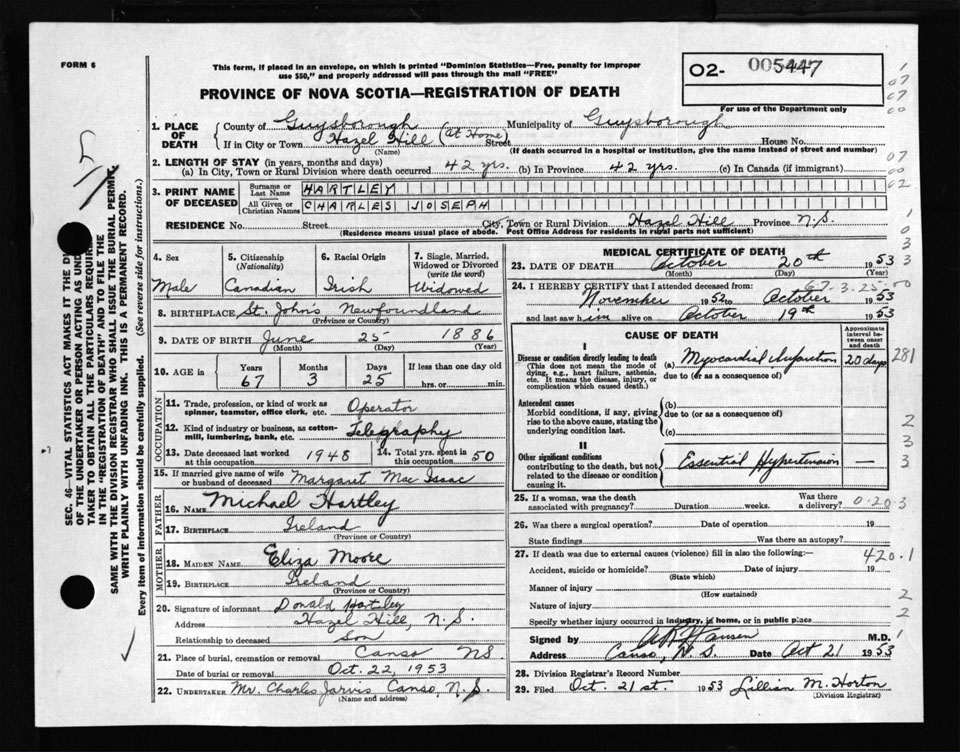 FORM 6
This form, if placed in an envelope, on which is printed "Dominion Statistics—Free, penalty for improper
use $50," and properly addressed will pass through the mail "FREE"
O2- 005447
For use of the Department only
PROVINCE OF NOVA SCOTIA—REGISTRATION OF DEATH
1. PLACE OF DEATH County of Guysborough Municipality of Guysborough
If in City or Town Hazel Hill (At Home) Street House No.
(Name) (If death occurred in a hospital or institution, give the name instead of street and number)
2. LENGTH OF STAY (in years, months and days)
(a) In City, Town or Rural Division where death occurred 42 yrs. (b) In Province 42 yrs. (c) In Canada (if immigrant)
3. PRINT NAME OF DECEASED Surname or Last Name HARTLEY
All Given or Christian Names CHARLES JOSEPH
RESIDENCE No. Street City, Town or Rural Division Hazel Hill Province N.S.
(Residence means usual place of abode. Post Office Address for residents in rural parts not sufficient)
4. Sex Male
5. Citizenship (Nationality) Canadian
6. Racial Origin Irish
7. Single, Married, Widowed or Divorced (write the word) Widowed
8. BIRTHPLACE St. John's Newfoundland
(Province or Country)
9. DATE OF BIRTH June 25 1886
(Month) (Day) (Year)
10. AGE in Years 67 Months 3 Days 25 If less than one day old
hrs. or min.
OCCUPATION
11. Trade, profession, or kind of work as
spinner, teamster, office clerk, etc. Operator
12. Kind of industry or business, as cotton-
mill, lumbering, bank, etc. Telegraphy
13. Date deceased last worked at this occupation 1948
14. Total yrs. spent in this occupation 50
15. If married give name of wife
or husband of deceased Margaret MacIsaac
FATHER
16. NAME Michael Hartley
17. BIRTHPLACE Ireland
(Province or Country)
MOTHER
18. MAIDEN NAME Eliza Moore
19. BIRTHPLACE Ireland
(Province or Country)
20. Signature of informant Donald Hartley
Address Hazel Hill, N.S.
Relationship to deceased Son
21. Place of burial, cremation or removal Canso NS
Date of burial or removal Oct. 22, 1953
22. UNDERTAKER Mr. Charles Jarvis Canso, N.S.
(Name and address)
MEDICAL CERTIFICATE OF DEATH
23. DATE OF DEATH October 20th 1953
(Month) (Day) (Year)
67-3-25-00
24. I HEREBY CERTIFY that I attended deceased from:
November 1952 to October 1953
and last saw him alive on October 19th 1953
CAUSE OF DEATH
Approximate interval between onset and death
I
Disease or condition directly leading to death
(This does not mean the mode of
dying, e.g., heart failure, asthenia,
etc. It means the disease, injury, or
complication which caused death.)
(a) Myocardial Infarction 20 days 281
due to (or as a consequence of)
Antecedent causes
Morbid conditions, if any, giving
rise to the above cause, stating the
underlying condition last.
(b)
due to (or as a consequence of)
(c)
II
Other significant conditions
contributing to the death, but not
related to the disease or condition
causing it.
Essential Hypertension
25. If a woman, was the death
associated with pregnancy? Duration weeks. Was there a delivery? 0-20-3
26. Was there a surgical operation? Date of operation 19
State findings Was there an autopsy?
27. If death was due to external causes (violence) fill in also the following: 420.1
Accident, suicide or homicide? Date of injury 19
(State which)
Manner of injury
(How sustained)
Nature of injury
Specify whether injury occurred in industry, in home, or in public place
Signed by M.D.
Address Canso, N.S. Date Oct 21 1953
28. Division Registrar's Record Number
29. Filed Oct. 21st. 1953 Lillian M. Horton
(Division Registrar)
SEC. 46—VITAL STATISTICS ACT MAKES IT THE
OF THE UNDERTAKER OR PERSON ACTING AS
TAKER TO OBTAIN ALL THE PARTICULARS
IN THE "REGISTRATION OF DEATH" AND TO FILE THE
SAME WITH THE DIVISION REGISTRAR WHO SHALL ISSUE THE BURIAL PERMIT.
WRITE PLAINLY WITH UNFADING INK. THIS IS A PERMANENT RECORD.
Every item of information should be carefully supplied. (See reverse side for instructions.)